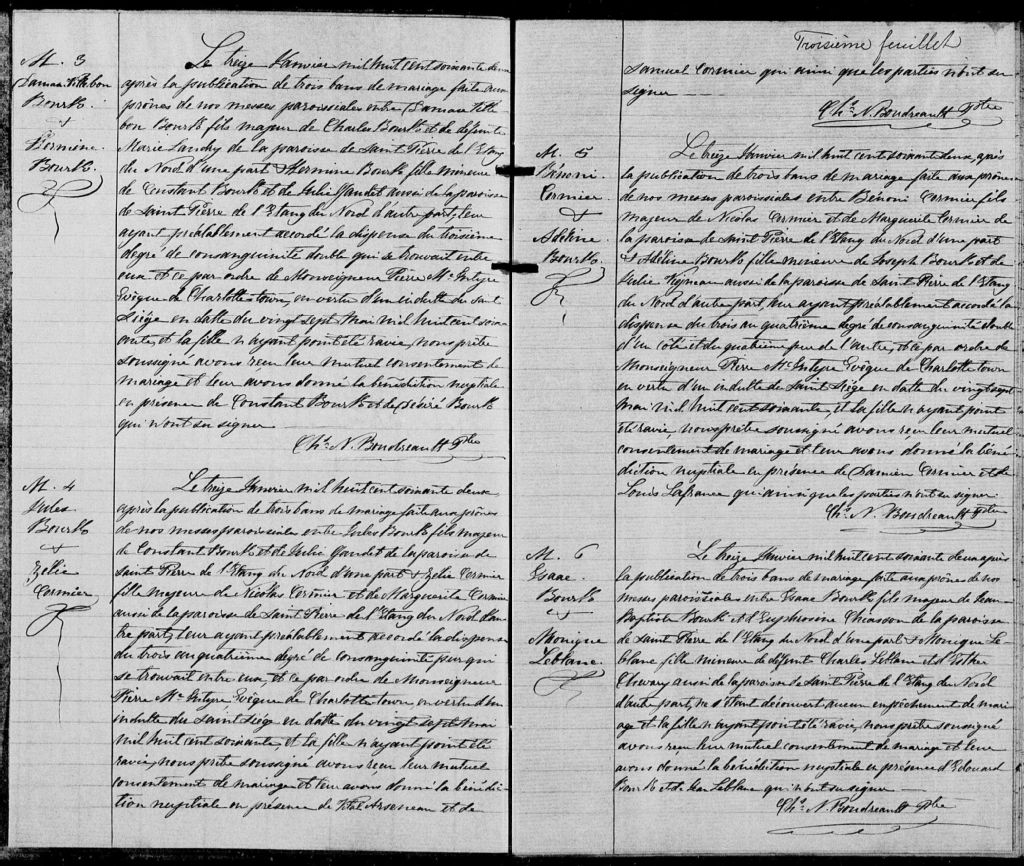 M. 3
Damas Tithbon
Bourk
&
Hermine
Bourk.
Le treize Janvier mil huit cent soixante deux
après la publication de trois bans de mariage faite aux
prônes de nos messes paroissiales entre Damase Tith
bon Bourk fils majeur de Charles Bourk et de défunte
Marie Landry de la paroisse de Saint Pierre de l'Etang
du Nord d'une part & Hermine Bourk fille mineure
de Constant Bourk et de Julie Gaudet aussi de la paroisse
de Saint Pierre de l'Etang du Nord d'autre part, leur
ayant préalablement accordé la dispense du troisième
degré de consanguinité double qui se trouvait entre
eux et ce par ordre de Monseigneur Pierre Mc Intyre
Evêque de Charlottetown, en vertu d'un indulte du Saint
Siége en datte du vingt sept Mai mil huit cent soix-
ante, et la fille n'ayant point été ravie, nous prêtre
soussigné avons reçu leur mutuel consentement de
mariage et leur avons donné la bénédiction nuptiale
en présence de Constant Bourk et de Désiré Bourk
qui n'ont su signer
Chs. N. Boudreault Ptre
M. 4
Jules
Bourk
&
Zelie
Cormier
Le treize Janvier mil huit cent soixante deux
après la publication de trois bans de mariage faite aux prônes
de nos messes paroissiales entre Jules Bourk fils majeur
de Constant Bourk et de Julie Gaudet de la paroisse de
Saint Pierre de l'Etang du Nord d'une part & Zelie Cormier
fille majeure de Nicolas Cormier et de Marguerite Cormier
aussi de la paroisse de Saint Pierre de l'Etang du Nord d'au
tre part, leur ayant préalablement accordé la dispense
du trois au quatrième degré de consanguinité pur qui
se trouvait entre eux, et ce par ordre de Monseigneur
Pierre Mc Intyre Evêque de Charlottetown, en vertu d'un
indulte du Saint Siége en datte du vingt sept Mai
mil huit cent soixante, et la fille n'ayant point été
ravie, nous prêtre soussigné avons reçu leur mutuel
consentement de mariage et leur avons donné la bénédic
tion nuptiale en présence de Arseneau et de
Troisième feuillet
Samuel Cormier qui ainsi que les parties n'ont su
signer
Chs. N. Boudreault Ptre
M. 5
Bénoni
Cormier
&
Adeline
Bourk
Le treize Janvier mil huit cent soixante deux, après
la publication de trois bans de mariage faite aux prônes
de nos messes paroissiales entre Bénoni Cormier fils
majeur de Nicolas Cormier et de Marguerite Cormier de
la paroisse de Saint Pierre de l'Etang du Nord d'une part
& Adéline Bourk fille mineure de Joseph Bourk et de
Julie aussi de la paroisse de Saint Pierre de l'Etang
du Nord d'autre part, leur ayant préalablement accordé la
dispense du trois au quatrième degré de consanguinité double
d'un côté et du quatrième pur de l'autre, et ce par ordre de
Monseigneur Pierre Mc Intyre Evêque de Charlottetown
en vertu d'un indulte du Saint Siége en datte du vingt sept
Mai mil huit cent soixante, et la fille n'ayant point
été ravie, nous prêtre soussigné avons reçu leur mutuel
consentement de mariage et leur avons donné la béné
diction nuptiale en présence de Damien Cormier et de
Louis Lafrance qui ainsi que les parties n'ont su signer
Chs. N. Boudreault Ptre
M. 6
Esaac
Bourk
&
Monique
Leblanc.
Le treize Janvier mil huit cent soixante deux après
la publication de trois bans de mariage faite aux prônes de nos
messes paroissiales entre Esaac Bourk fils majeur de Jean
Baptiste Bourk et d'Euphrosine Chiasson de la paroisse
de Saint Pierre de l'Etang du Nord d'une part & Monique Le
blanc fille mineure de défunt Charles Leblanc et d'Esther
Chevary aussi de la paroisse de Saint Pierre de l'Etang du Nord
d'autre part, ne s'étant découvert aucun empêchement de mari
age et la fille n'ayant point été ravie, nous prêtre soussigné
avons reçu leur mutuel consentement de mariage et leur
avons donné la bénédiction nuptiale en présence d'Edouard
Bourk et de Leblanc qui n'ont su signer
Chs. N. Boudreault Ptre